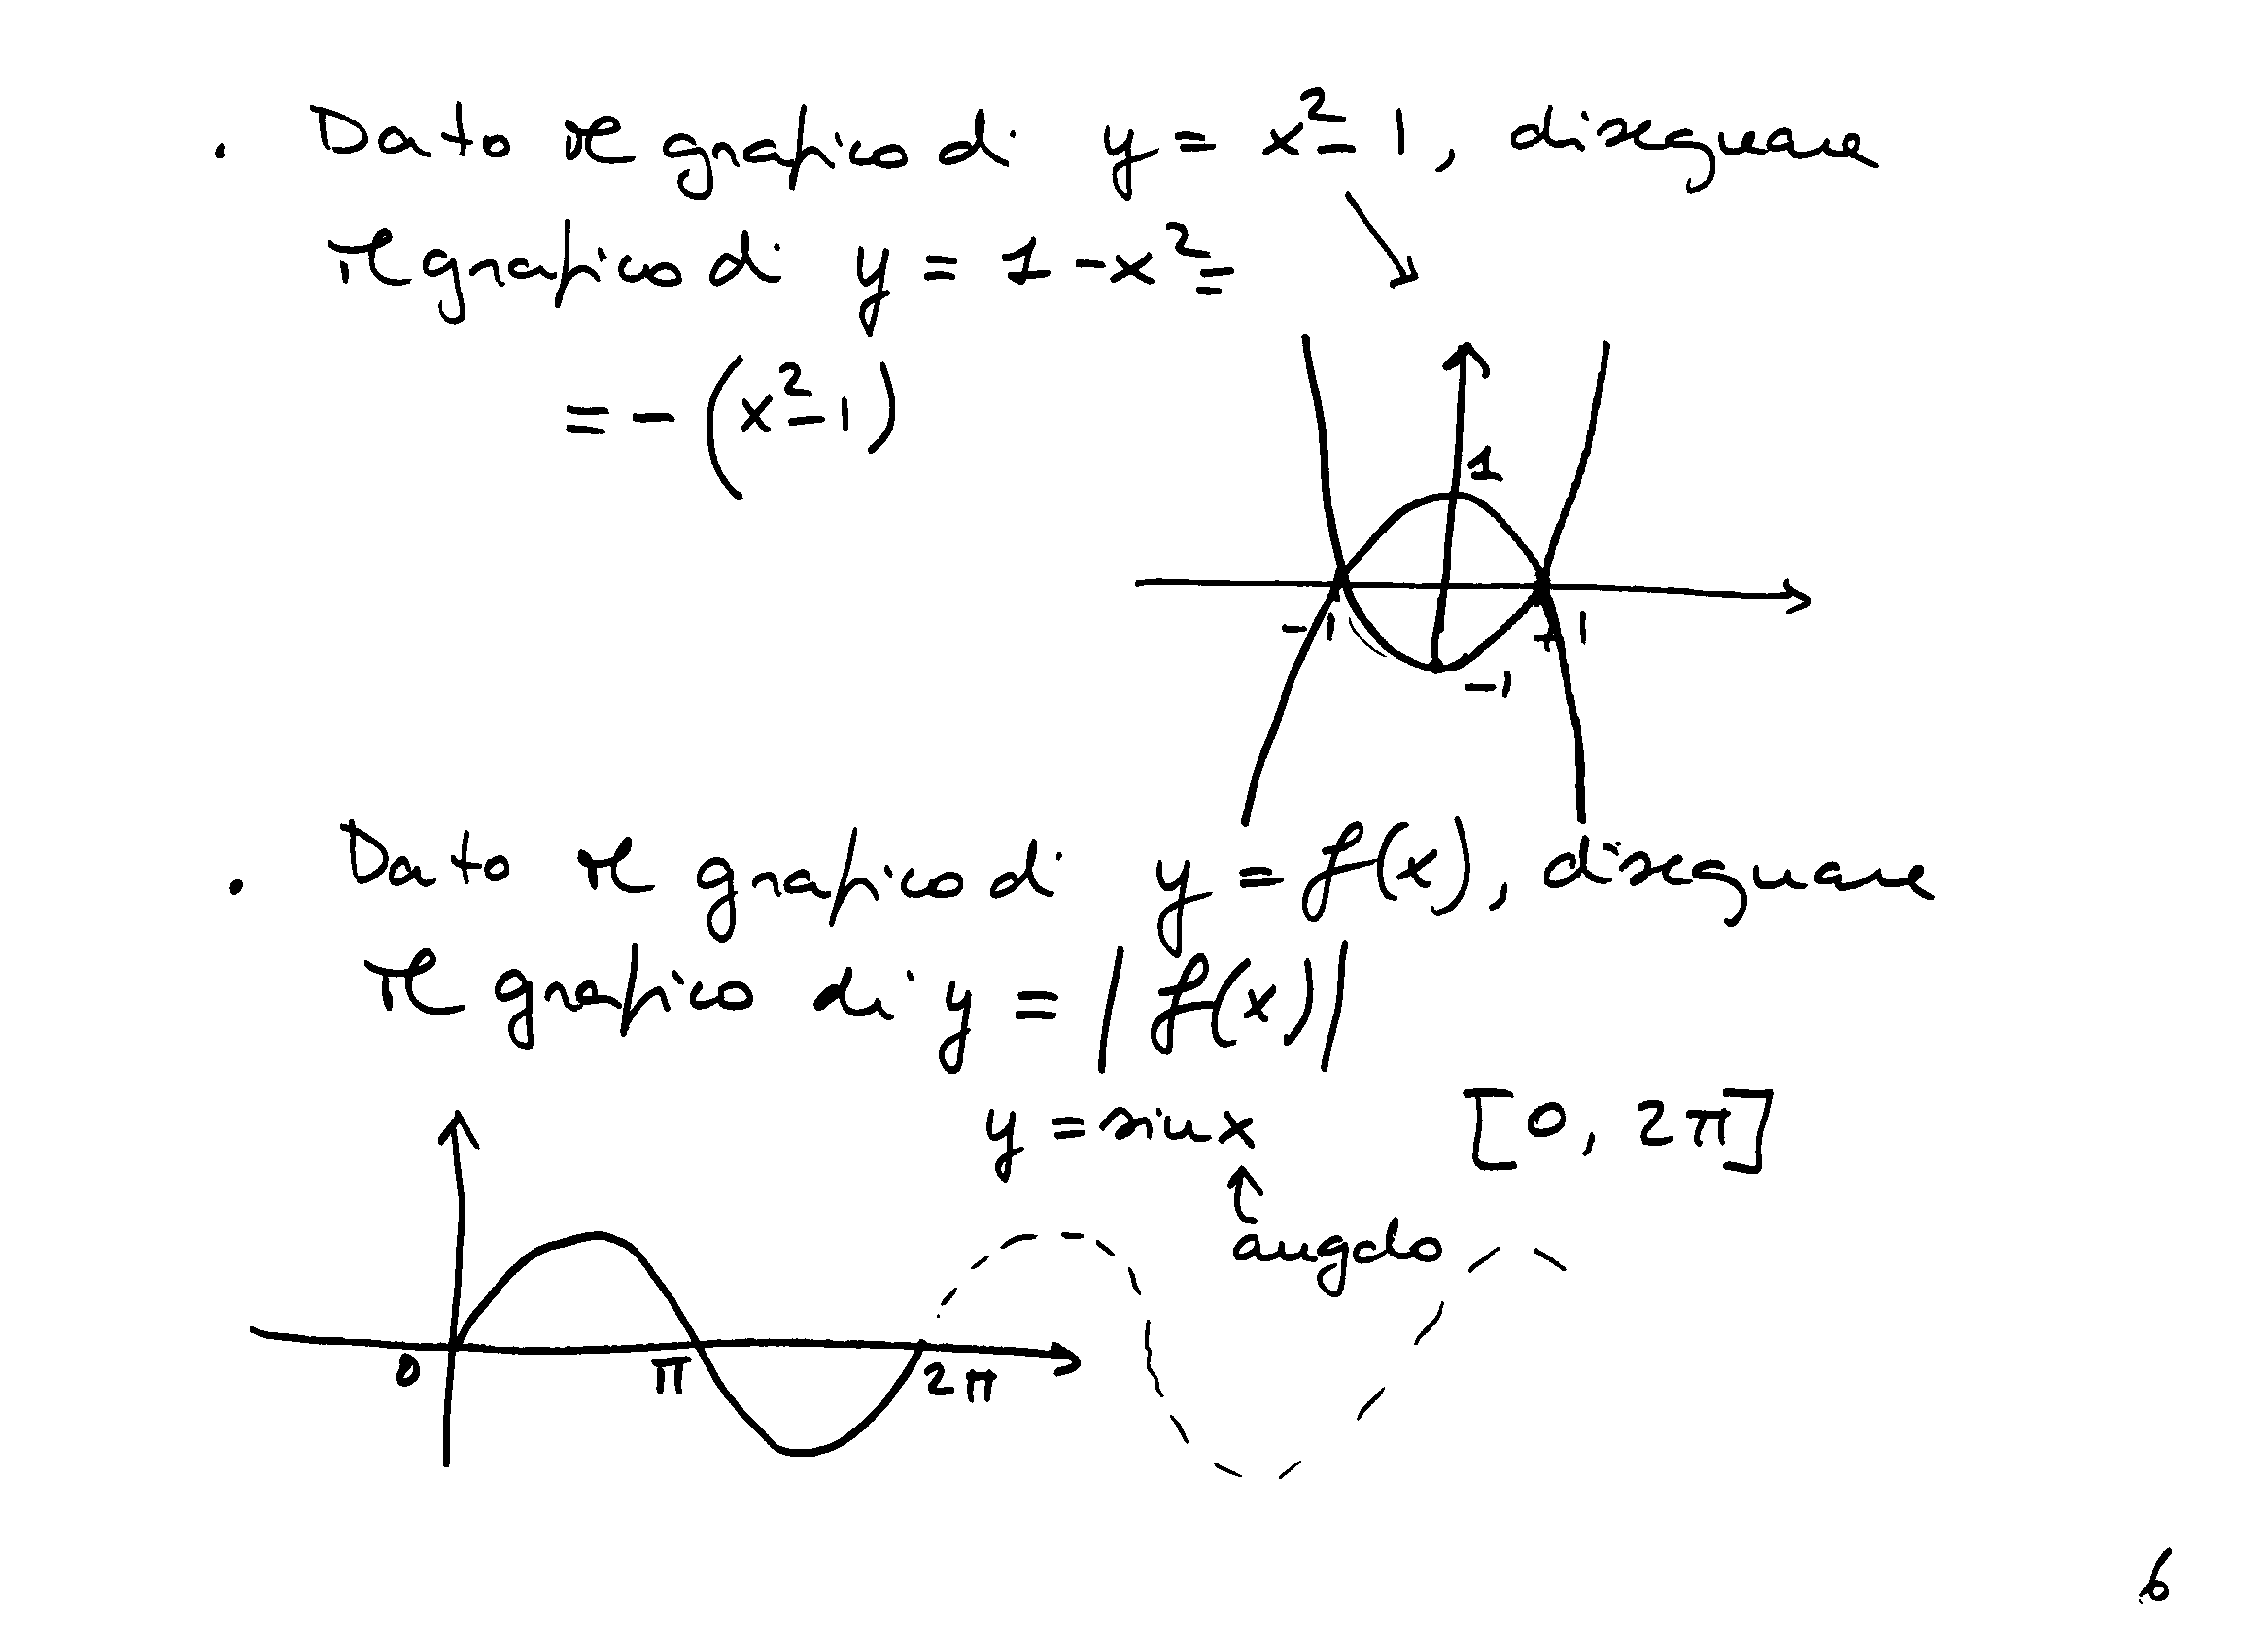 . Dato il grafico di y = x²-1, disegnare
il grafico di y = 1-x² =
= - (x²-1)
1
-1 +1
-1
. Dato il grafico di y = f(x), disegnare
il grafico di y = |f(x)|
y = sin x [0, 2π]
angolo
0 π 2π
6